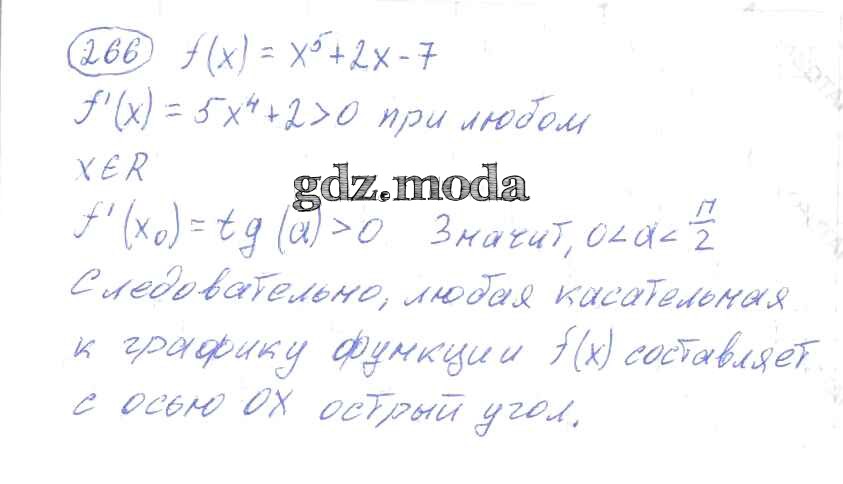 266 f(x) = x⁵+2x-7
f'(x) = 5x⁴+2>0 при любом
x∈R
gdz.moda
f'(x₀) = tg(a)>0 Значит, 0<a<π/2
Следовательно, любая касательная
к графику функции f(x) составляет
с осью OX острый угол.